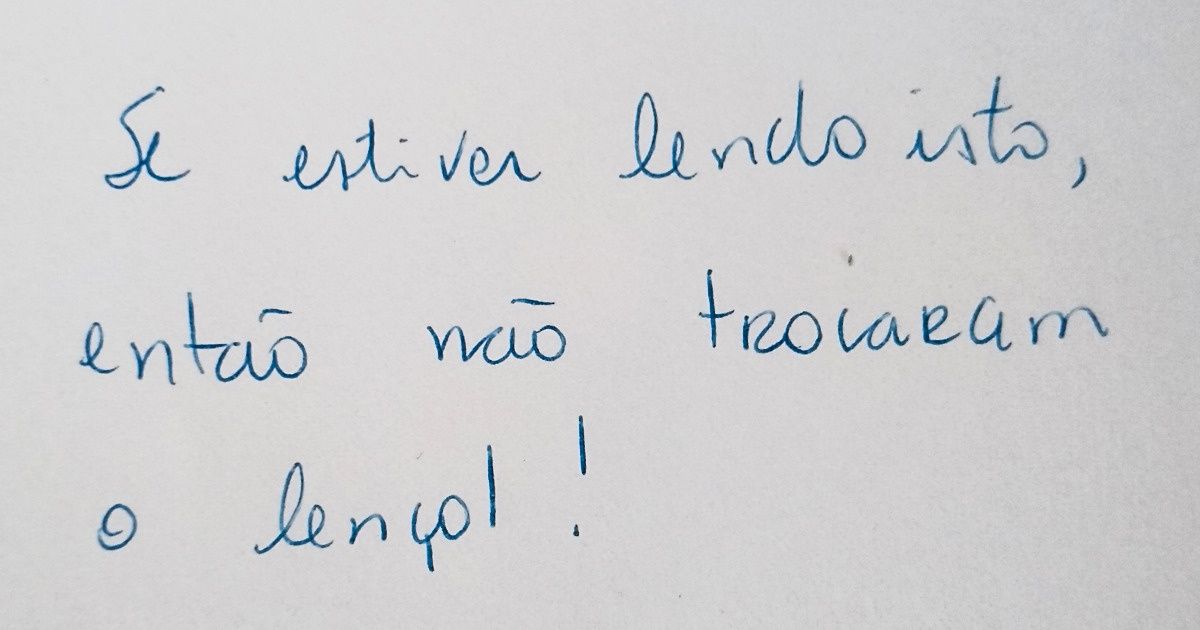 Se estiver lendo isto,
então não trocaram
o lençol!